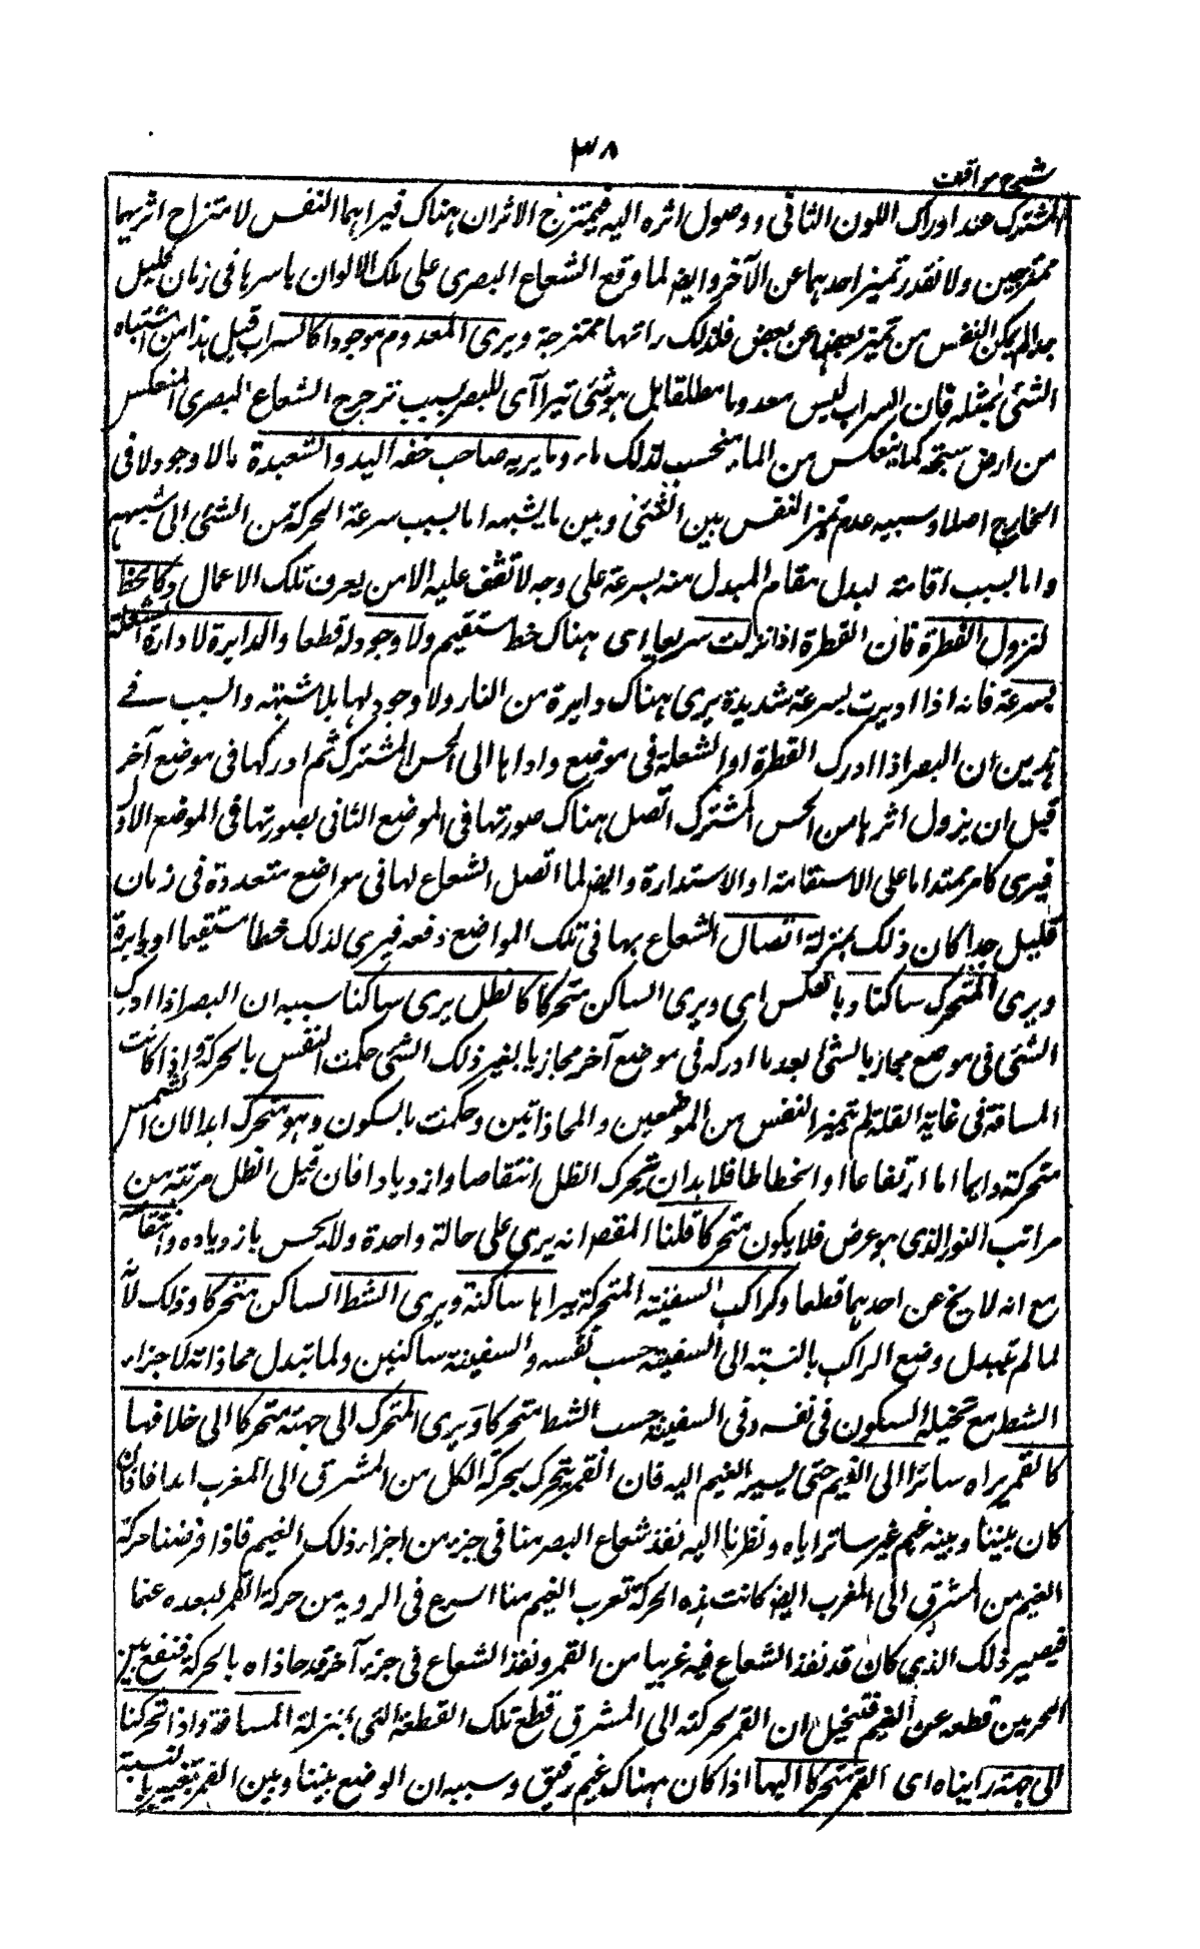 ٣٨
شرح مواقف
المشترك عند ادراك اللون الثانی ووصول اثره اليه فيمتزج الاثران هناك فيراهما النفس لامتزاج اثريهما
ممتزجين ولا تقدر تميز احدهما عن الآخر وايضا لما وقع الشعاع البصری علی تلك الالوان باسرها فی زمان قليل
جدا لم يمكن النفس من تميز بعضها عن بعض فلذلك راتها ممتزجة ويری المعدوم موجودا كالسراب قيل هذا من اشتباه
الشئی بمثله فان السراب ليس معدوما مطلقا بل هو شئی تيراآی للبصر بسبب ترجرج الشعاع البصری المنعكس
من ارض سبخة كما ينعكس من الماء فيحسب لذلك ماء وما يريه صاحب خفة اليد والشعبدة مالا وجود له فی
الخارج اصلا وسببه عدم تميز النفس بين الشئی وبين ما يشبهه اما بسبب سرعة الحركة من الشئی الی شبهه
واما بسبب اقامة البدل مقام المبدل منه بسرعة علی وجه لا تقف عليه الا من يعرف تلك الاعمال وكالخط
لنزول القطرة فان القطرة اذا نزلت سريعا يری هناك خط مستقيم ولا وجود له قطعا والدايرة لادارة الشعلة
بسرعة فانه اذا اديرت بسرعة شديدة يری هناك دايرة من النار ولا وجود لها بلا شبهة والسبب فی
هذين ان البصر اذا ادرك القطرة او الشعلة فی موضع واداها الی الحس المشترك ثم ادركها فی موضع آخر
قبل ان يزول اثرها من الحس المشترك اتصل هناك صورتها فی الموضع الثانی بصورتها فی الموضع الاول
فيری كامر ممتد اما علی الاستقامة او الاستدارة وايضا لما اتصل الشعاع لها فی مواضع متعددة فی زمان
قليل جدا كان ذلك بمنزلة اتصال الشعاع بها فی تلك المواضع دفعه فيری لذلك خطا مستقيما او دايرة
ويری المتحرك ساكنا وبالعكس ای ويری الساكن متحركا كالظل يری ساكنا سببه ان البصر اذا ادرك
الشئی فی موضع مجازيا لشئ بعد ما ادركه فی موضع آخر مجازيا بغير ذلك الشئی حكمت النفس بالحركة واذا كانت
المسافة فی غاية القلة لم يتميز النفس من الموضعين والمحاذاتين وحكمت بالسكون وهو متحرك ابدا لان الشمس
متحركة دايما اما ارتفاعا او انحطاطا فلا بد ان يتحرك الظل انتقاصا وازديادا فان قيل الظل مرتبة من
مراتب النور الذی هو عرض فلا يكون متحركا قلنا المقصر انه يری علی حالة واحدة ولا يحس بازدياده وانتقاصه
مع انه لا يخ عن احدهما قطعا وكراكب السفينة المتحركة يراها ساكنة ويری الشط الساكن متحركا وذلك لانه
لما لم تبدل وضع الراكب بالنسبة الی السفينة حسب نفسه والسفينة ساكنين ولما تبدل محاذاته لاجزاء
الشط مع تخيله السكون فی نفسه وفی السفينة حسب الشط متحركا ويری المتحرك الی جهة متحركا الی خلافها
كالقمر يراه سائرا الی الغيم حتی يسير الغيم اليه فان القمر يتحرك بحركة الكل من المشرق الی المغرب ابدا فاذا كان
كان بيننا وبينه غيم غير ساتر اياه ونظرنا اليه نفذ شعاع البصر منا فی جزء من اجزاء ذلك الغيم فاذا فرضنا حركة
الغيم من المشرق الی المغرب ايضا كانت هذه الحركة لقرب الغيم منا اسرع فی الروية من حركة القمر لبعده عنا
فيصير ذلك الذی كان قد نفذ الشعاع فيه غربيا من القمر ونفذ الشعاع فی جزء آخر قد حاذاه بالحركة فتقع بين
الجزئين قطعه عن الغيم فتخيل ان القمر بحركته الی المشرق قطع تلك القطعة التی بمنزلة المسافة واذا تحركنا
الی جهة رايناه ای القمر متحركا اليها اذا كان هناك غيم رقيق وسببه ان الوضع بيننا وبين القمر يتغير بالنسبة